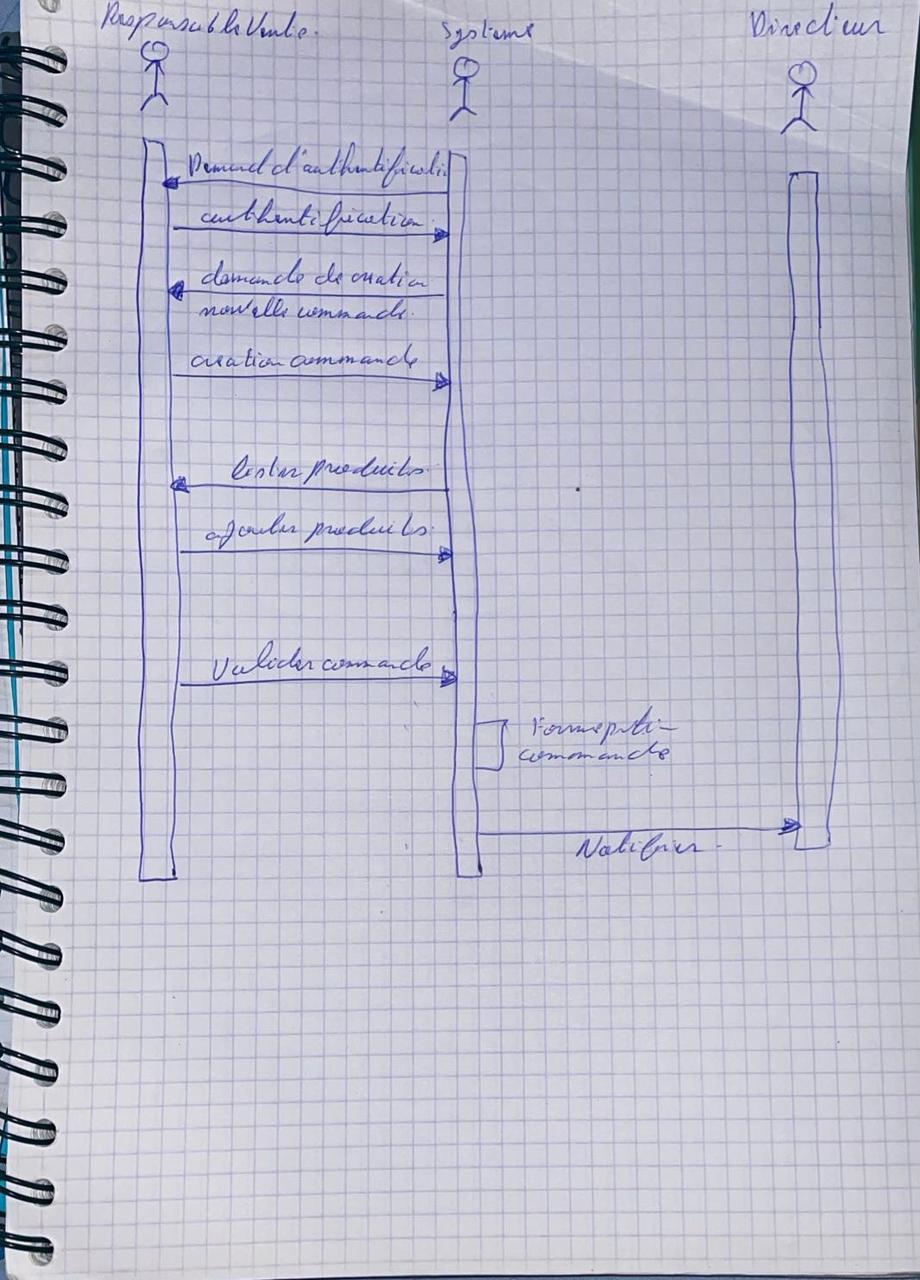 Responsable Vente.
Systeme
Directeur
Demand d'authentificati
authentification.
demande de creation
nouvelle commande.
creation commande
lister produits.
ajouter produits.
Valider commande
commande
Notifier.